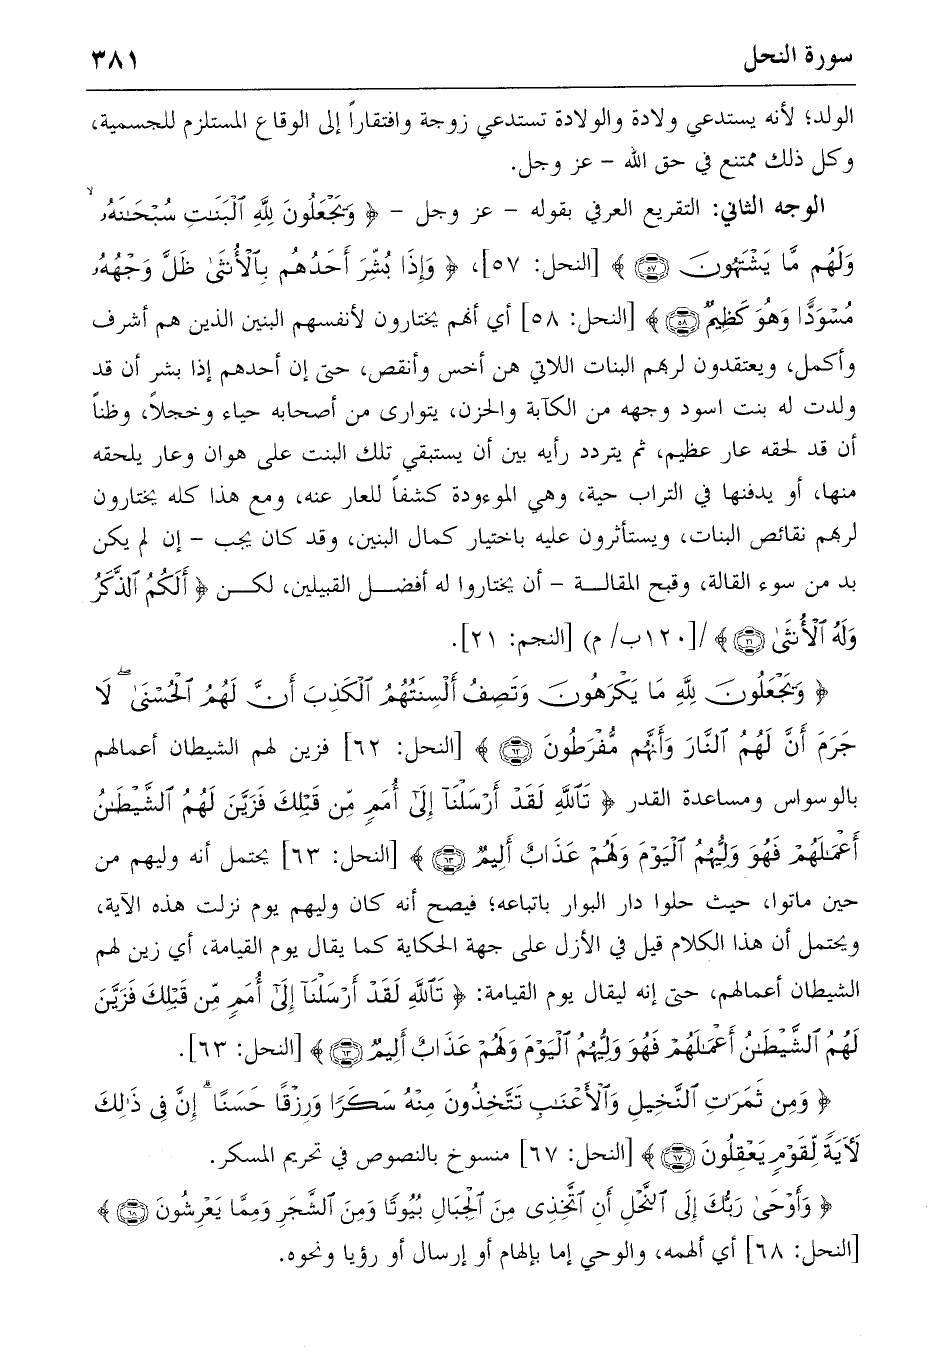 سورة النحل ٣٨١
الولد؛ لأنه يستدعي ولادة والولادة تستدعي زوجة وافتقاراً إلى الوقاع المستلزم للجسمية،
وكل ذلك ممتنع في حق الله – عز وجل.
الوجه الثاني: التقريع العرفي بقوله – عز وجل – ﴿ وَيَجْعَلُونَ لِلَّهِ ٱلْبَنَـٰتِ سُبْحَـٰنَهُۥ ۙ
وَلَهُم مَّا يَشْتَهُونَ ﴿٥٧﴾ ﴾ [النحل: ٥٧]، ﴿ وَإِذَا بُشِّرَ أَحَدُهُم بِٱلْأُنثَىٰ ظَلَّ وَجْهُهُۥ
مُسْوَدًّا وَهُوَ كَظِيمٌ ﴿٥٨﴾ ﴾ [النحل: ٥٨] أي أنهم يختارون لأنفسهم البنين الذين هم أشرف
وأكمل، ويعتقدون لربهم البنات اللاتي هن أخس وأنقص، حتى إن أحدهم إذا بشر أن قد
ولدت له بنت اسود وجهه من الكآبة والحزن، يتوارى من أصحابه حياء وخجلاً، وظناً
أن قد لحقه عار عظيم، ثم يتردد رأيه بين أن يستبقي تلك البنت على هوان وعار يلحقه
منها، أو يدفنها في التراب حية، وهي الموءودة كشفاً للعار عنه، ومع هذا كله يختارون
لربهم نقائص البنات، ويستأثرون عليه باختيار كمال البنين، وقد كان يجب – إن لم يكن
بد من سوء القالة، وقبح المقالة – أن يختاروا له أفضل القبيلين، لكن ﴿ أَلَكُمُ ٱلذَّكَرُ
وَلَهُ ٱلْأُنثَىٰ ﴿٢١﴾ ﴾ /[١٢٠ب/ م) [النجم: ٢١].
﴿ وَيَجْعَلُونَ لِلَّهِ مَا يَكْرَهُونَ وَتَصِفُ أَلْسِنَتُهُمُ ٱلْكَذِبَ أَنَّ لَهُمُ ٱلْحُسْنَىٰ ۖ لَا
جَرَمَ أَنَّ لَهُمُ ٱلنَّارَ وَأَنَّهُم مُّفْرَطُونَ ﴿٦٢﴾ ﴾ [النحل: ٦٢] فزين لهم الشيطان أعمالهم
بالوسواس ومساعدة القدر ﴿ تَٱللَّهِ لَقَدْ أَرْسَلْنَآ إِلَىٰٓ أُمَمٍ مِّن قَبْلِكَ فَزَيَّنَ لَهُمُ ٱلشَّيْطَـٰنُ
أَعْمَـٰلَهُمْ فَهُوَ وَلِيُّهُمُ ٱلْيَوْمَ وَلَهُمْ عَذَابٌ أَلِيمٌ ﴿٦٣﴾ ﴾ [النحل: ٦٣] يحتمل أنه وليهم من
حين ماتوا، حيث حلوا دار البوار باتباعه؛ فيصح أنه كان وليهم يوم نزلت هذه الآية،
ويحتمل أن هذا الكلام قيل في الأزل على جهة الحكاية كما يقال يوم القيامة، أي زين لهم
الشيطان أعمالهم، حتى إنه ليقال يوم القيامة: ﴿ تَٱللَّهِ لَقَدْ أَرْسَلْنَآ إِلَىٰٓ أُمَمٍ مِّن قَبْلِكَ فَزَيَّنَ
لَهُمُ ٱلشَّيْطَـٰنُ أَعْمَـٰلَهُمْ فَهُوَ وَلِيُّهُمُ ٱلْيَوْمَ وَلَهُمْ عَذَابٌ أَلِيمٌ ﴿٦٣﴾ ﴾ [النحل: ٦٣].
﴿ وَمِن ثَمَرَٰتِ ٱلنَّخِيلِ وَٱلْأَعْنَـٰبِ تَتَّخِذُونَ مِنْهُ سَكَرًا وَرِزْقًا حَسَنًا ۗ إِنَّ فِى ذَٰلِكَ
لَـَٔايَةً لِّقَوْمٍ يَعْقِلُونَ ﴿٦٧﴾ ﴾ [النحل: ٦٧] منسوخ بالنصوص في تحريم المسكر.
﴿ وَأَوْحَىٰ رَبُّكَ إِلَى ٱلنَّحْلِ أَنِ ٱتَّخِذِى مِنَ ٱلْجِبَالِ بُيُوتًا وَمِنَ ٱلشَّجَرِ وَمِمَّا يَعْرِشُونَ ﴿٦٨﴾ ﴾
[النحل: ٦٨] أي ألهمه، والوحي إما بإلهام أو إرسال أو رؤيا ونحوه.